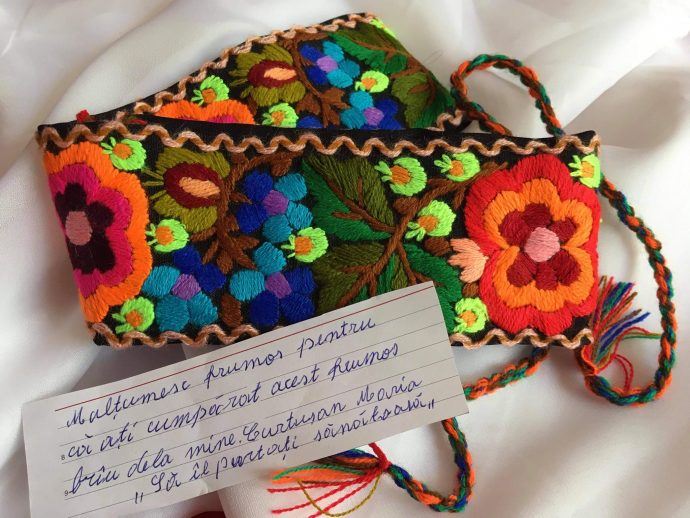 Mulțumesc frumos pentru
că ați cumpărat acest frumos
brîu dela mine. Curtușan Maria
„Să îl purtați sănătoasă„